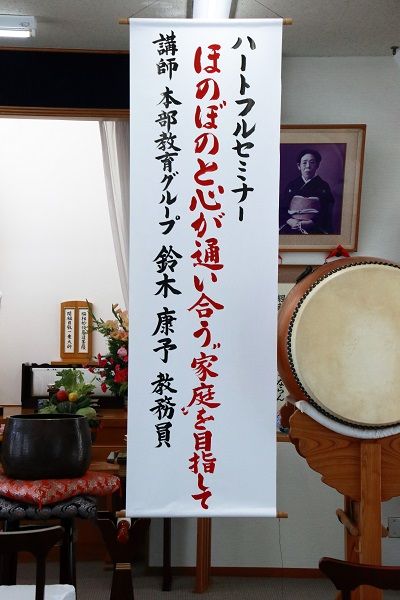 ハートフルセミナー
ほのぼのと心が通い合う"家庭"を目指して
講師 本部教育グループ 鈴木康予教務員